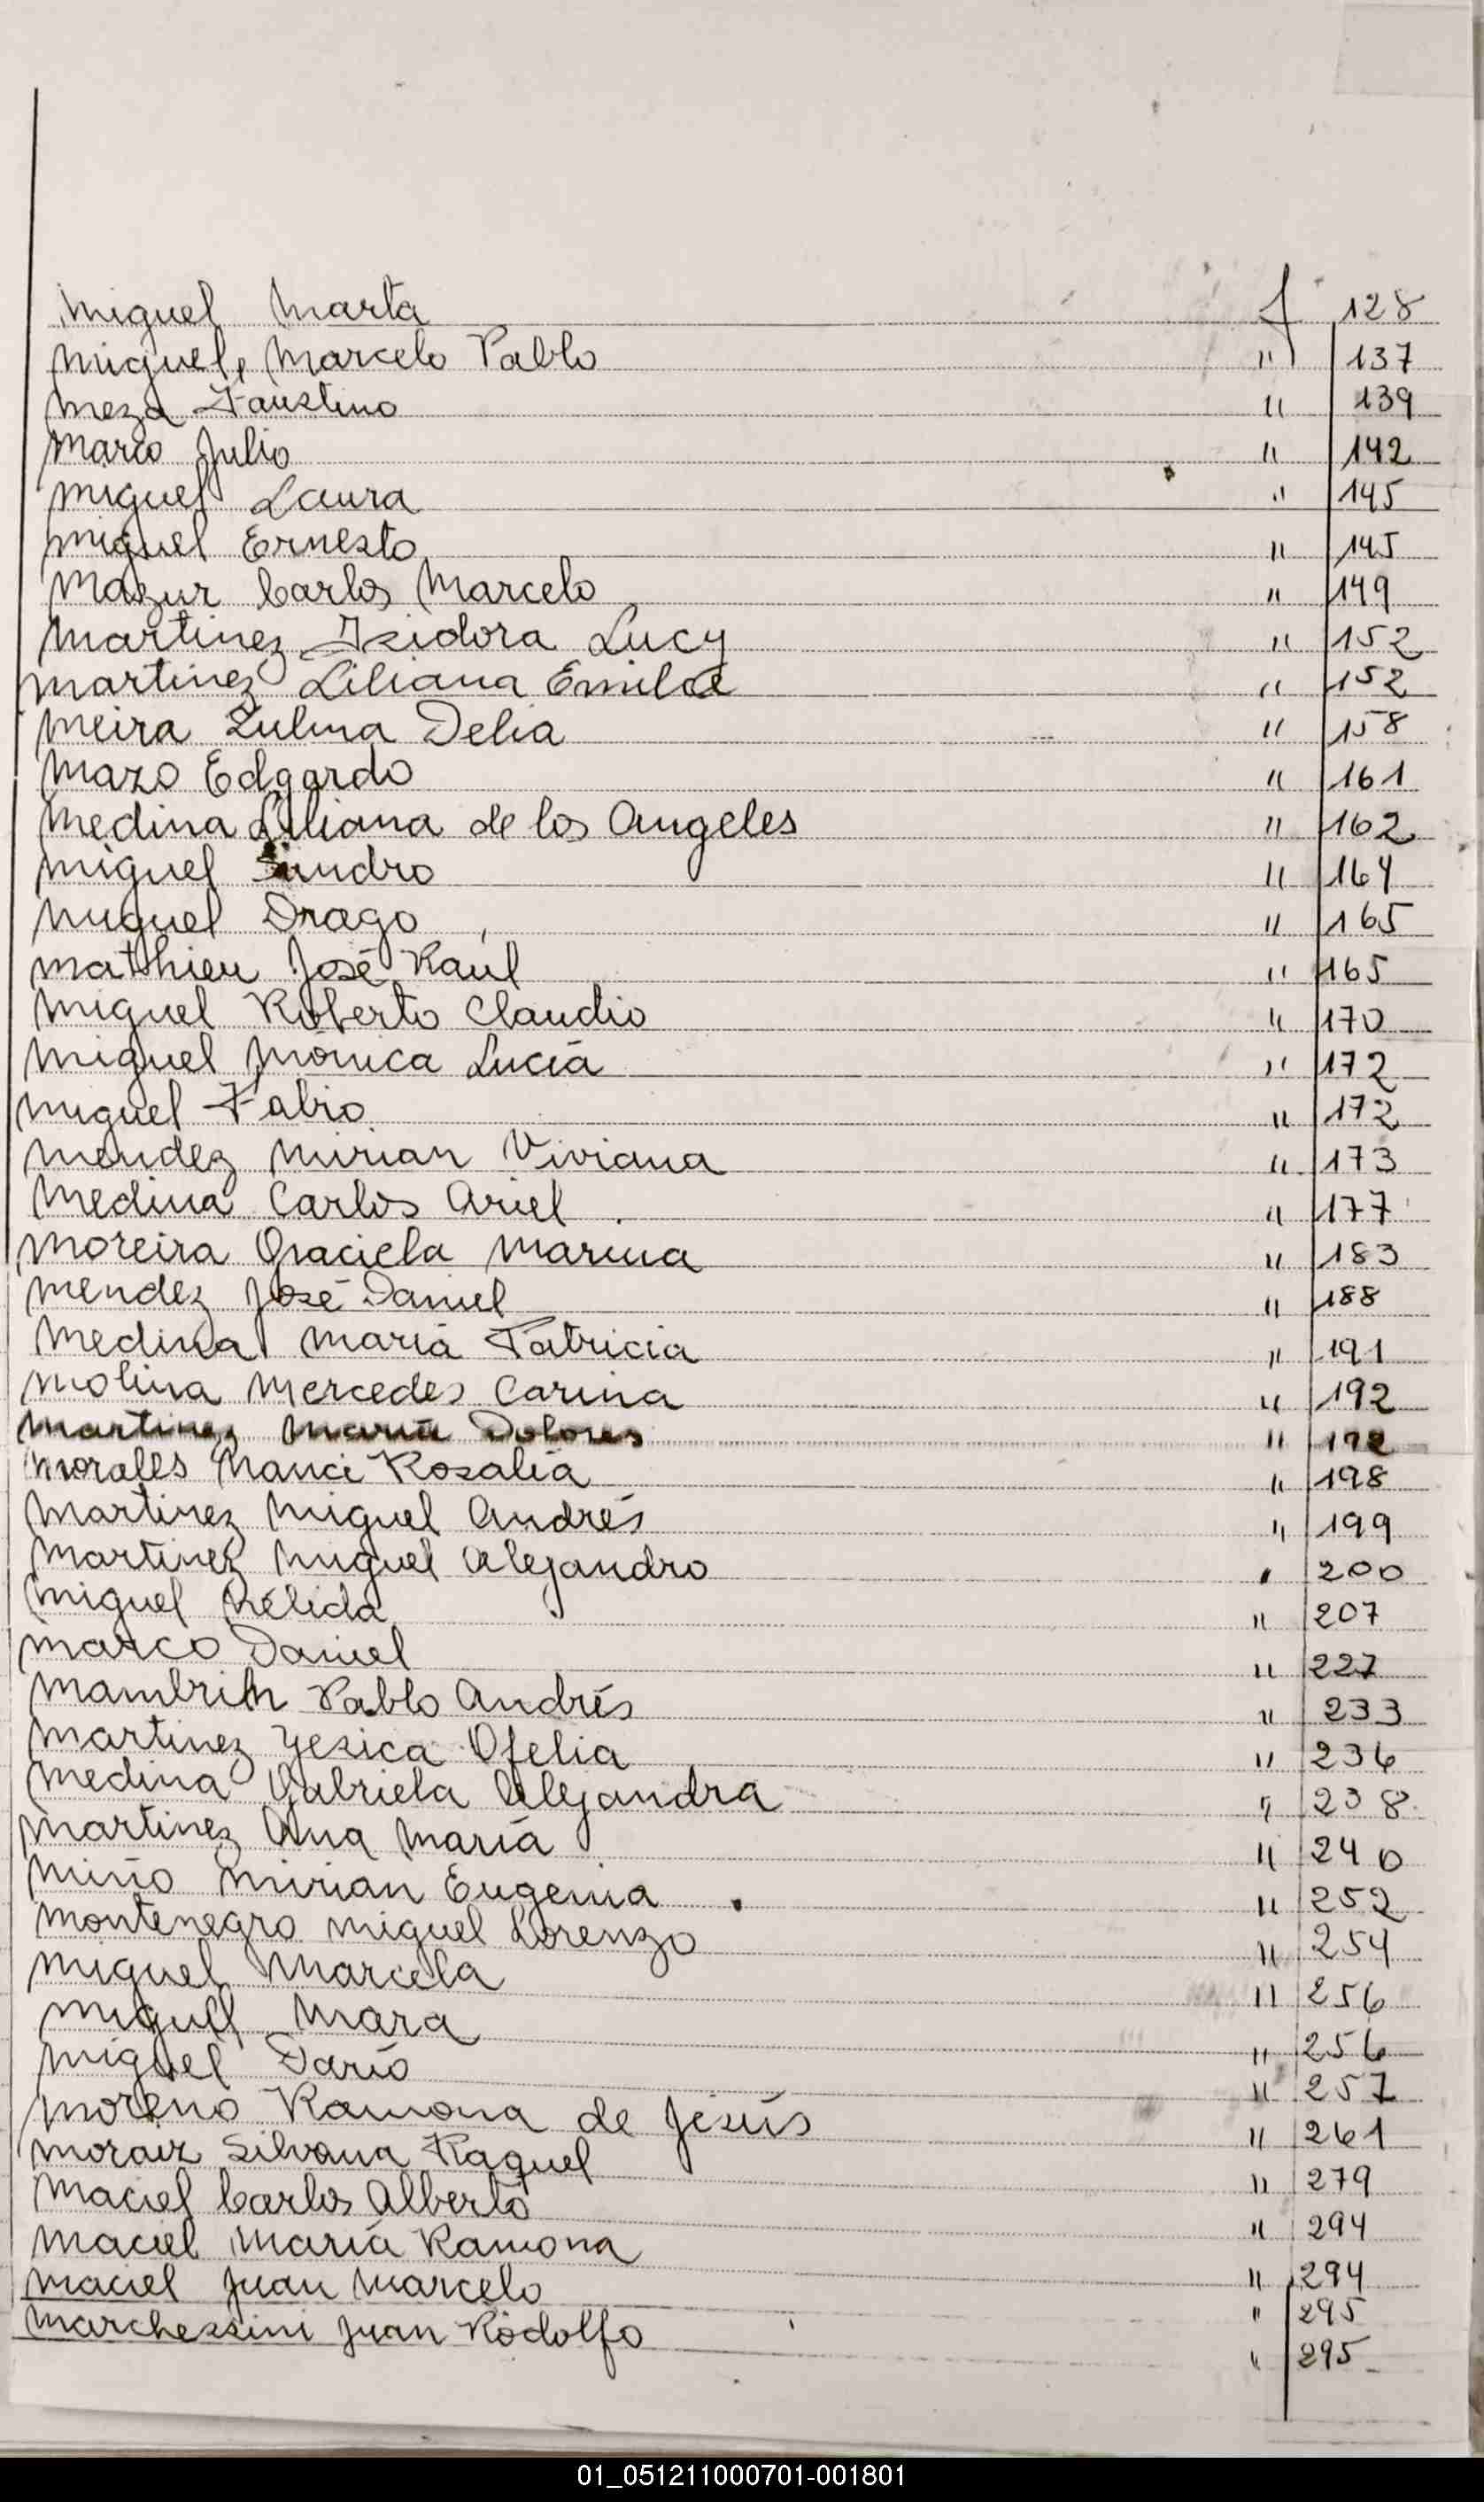 Miguel Marta f 128
Miguel, Marcelo Pablo " 137
Meza Faustino " 139
Marco Julio " 142
Miguel Laura " 145
Miguel Ernesto " 145
Mazur Carlos Marcelo " 149
Martinez Isidora Lucy " 152
Martinez Liliana Emilce " 152
Meira Zulma Delia " 158
Mazo Edgardo " 161
Medina Liliana de los Angeles " 162
Miguel Sandro " 164
Miguel Drago " 165
Matthieu José Raúl " 165
Miguel Roberto Claudio " 170
Miguel Mónica Lucía " 172
Miguel Fabio " 172
Mendez Mirian Viviana " 173
Medina Carlos Ariel " 177
Moreira Graciela Marina " 183
Mendez José Daniel " 188
Medina María Patricia " 191
Molina Mercedes Carina " 192
Martinez María Dolores " 192
Morales Nanci Rosalía " 198
Martinez Miguel Andrés " 199
Martinez Miguel Alejandro " 200
Miguel Nélida " 207
Marco Daniel " 227
Mambrin Pablo Andrés " 233
Martinez Yesica Ofelia " 236
Medina Gabriela Alejandra " 238
Martinez Ana María " 240
Miño Mirian Eugenia " 252
Montenegro Miguel Lorenzo " 254
Miguel Marcela " 256
Miguel Mara " 256
Miguel Darío " 257
Moreno Ramona de Jesús " 261
Moraiz Silvana Raquel " 279
Maciel Carlos Alberto " 294
Maciel María Ramona " 294
Maciel Juan Marcelo " 295
Marchessini Juan Rodolfo " 295
01_051211000701-001801